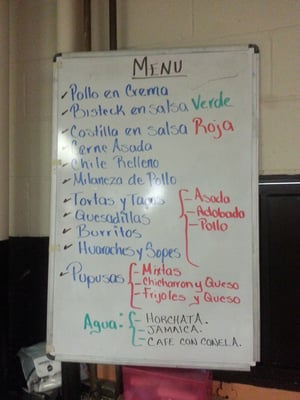 MENU
Pollo en Crema
Bisteck en salsa Verde
Costilla en salsa Roja
Carne Asada
Chile Relleno
Milaneza de Pollo
Tortas y Tacos - Asada
Quesadillas - Adobada
Burritos - Pollo
Huaraches y Sopes
Pupusas - Mixtas
- Chicharron y Queso
- Frijoles y Queso
Agua: - HORCHATA.
- JAMAICA.
- CAFE CON CONELA.